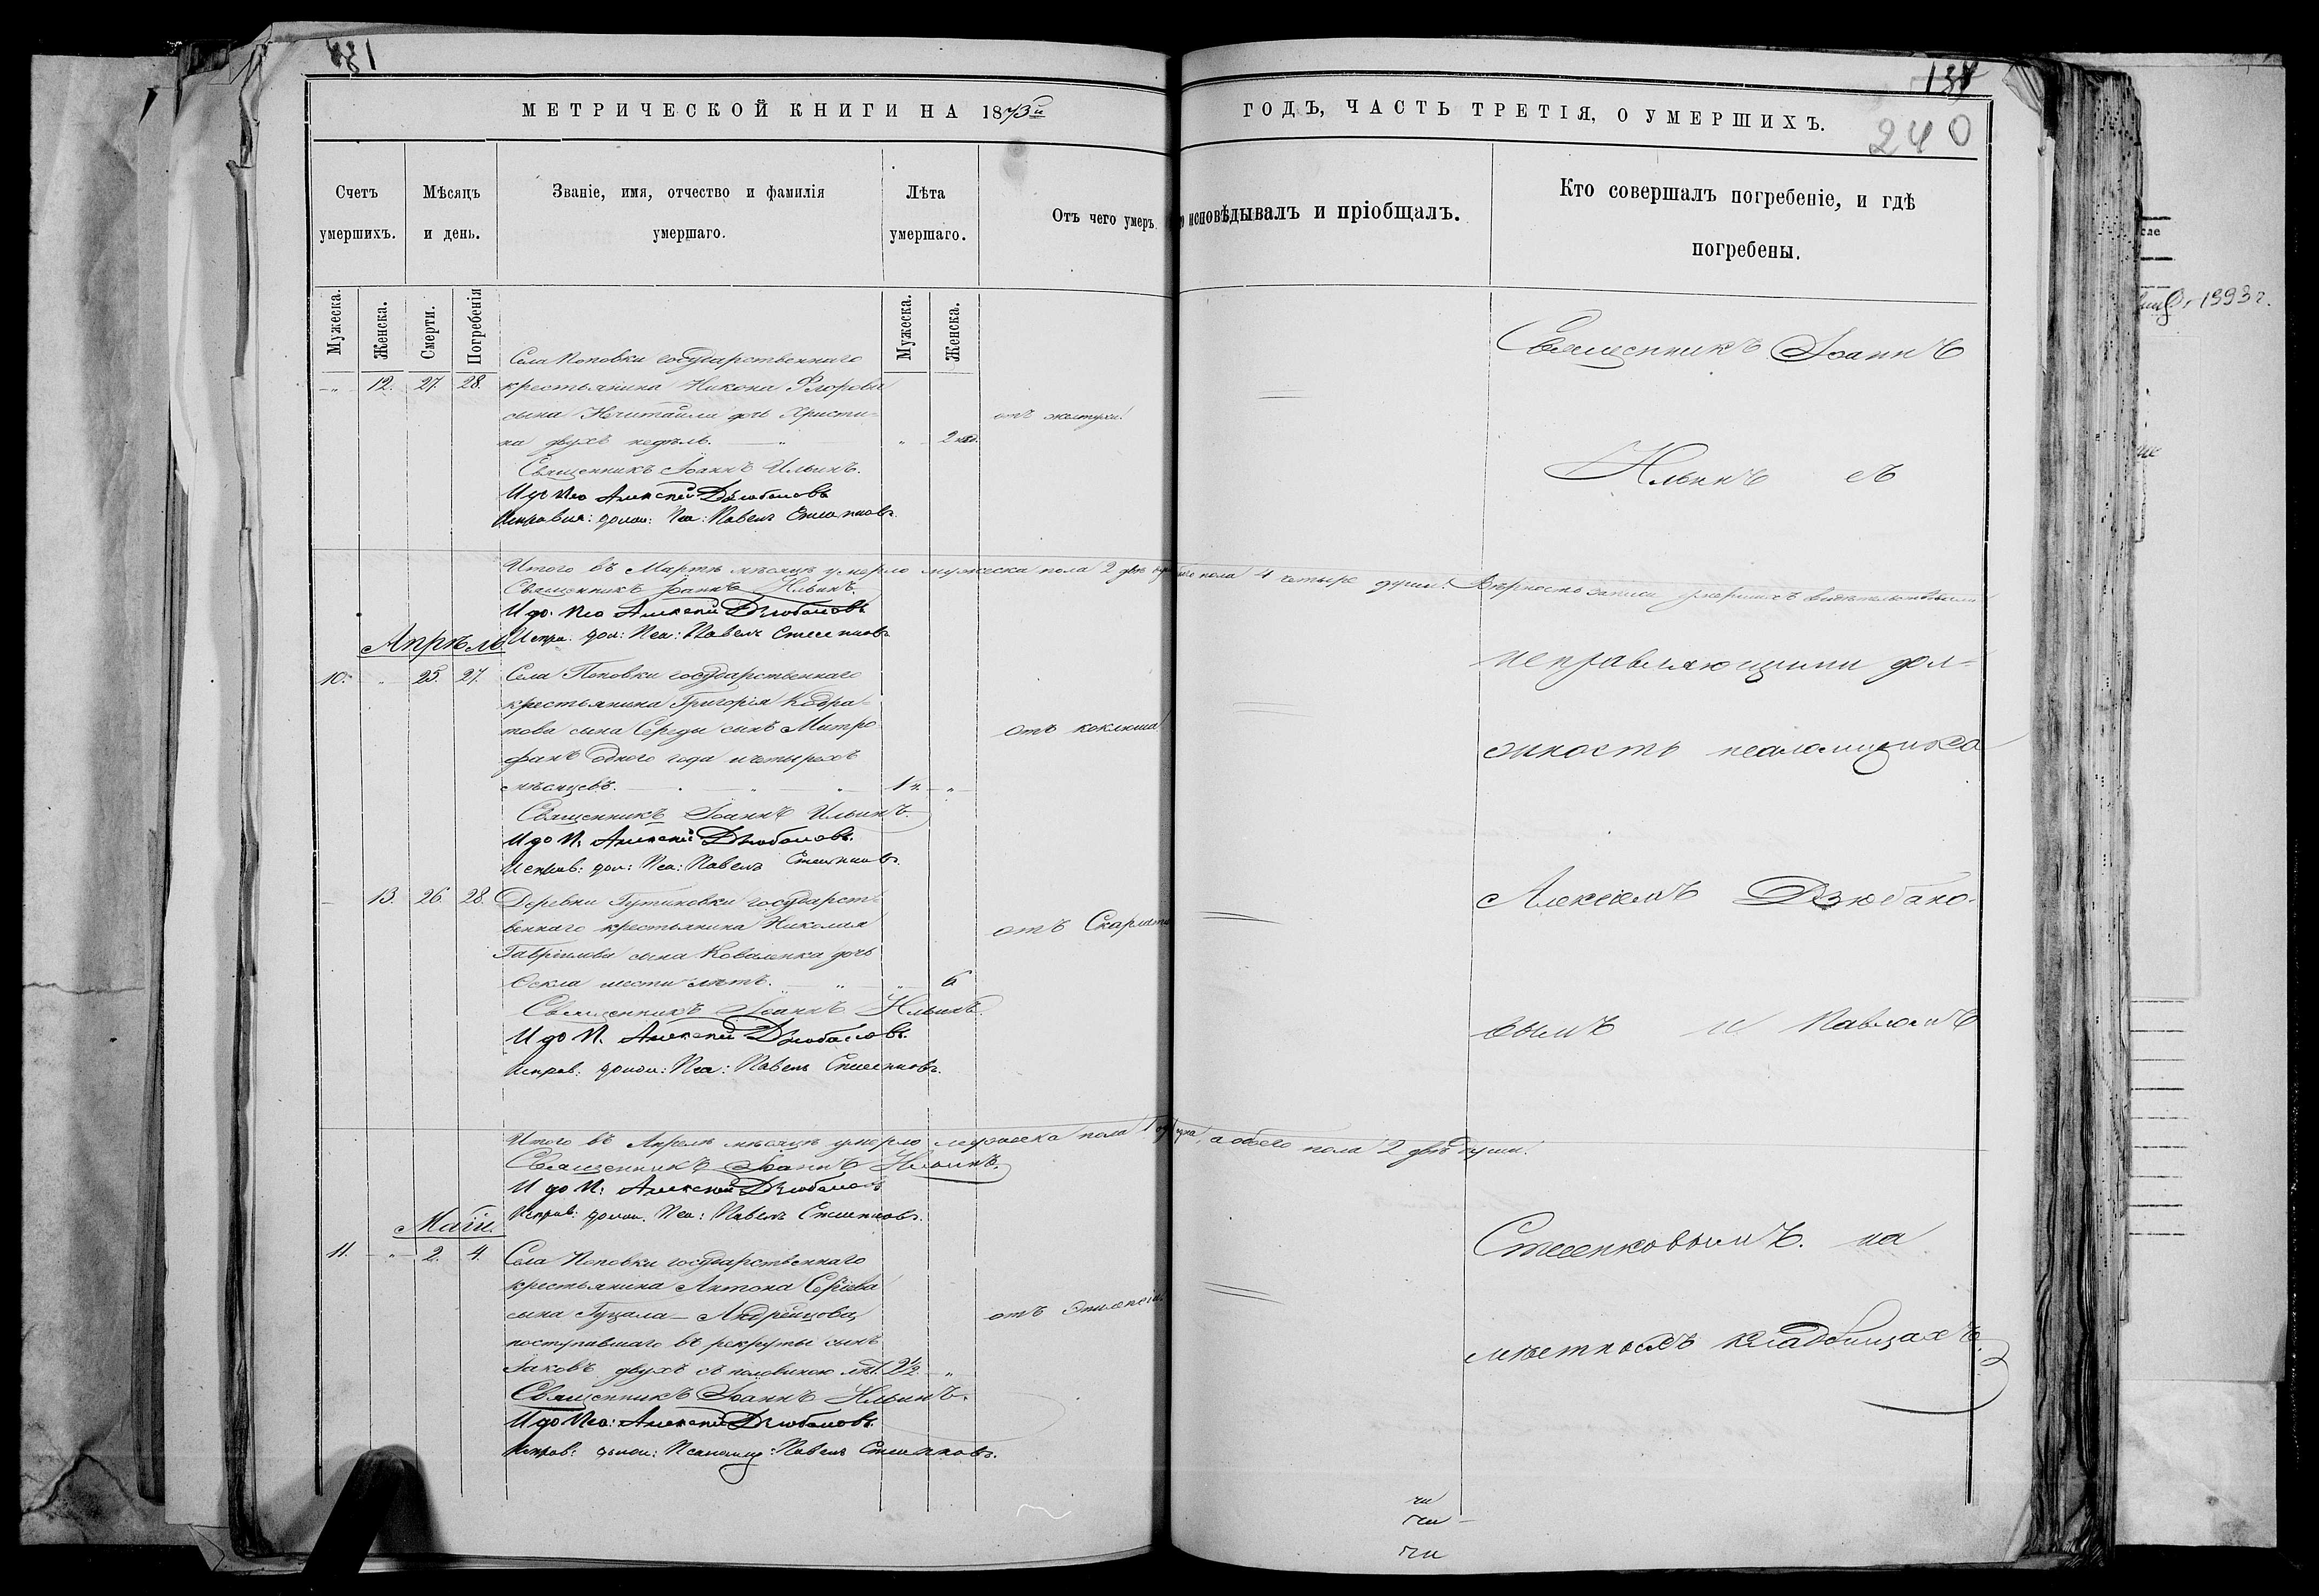 МЕТРИЧЕСКОЙ КНИГИ НА 1873й
ГОДЪ, ЧАСТЬ ТРЕТІЯ, О УМЕРШИХЪ.
240
Счетъ умершихъ.
Мѣсяцъ и день.
Званіе, имя, отчество и фамилія умершаго.
Лѣта умершаго.
Отъ чего умеръ.
исповѣдывалъ и пріобщалъ.
Кто совершалъ погребеніе, и гдѣ
погребены.
Мужеска.
Женска.
Смерти.
Погребенія
Мужеска.
Женска.
Села Поповки государственнаго
12. 27. 28. крестьянина Никона Флорова
сына дочь Христи-
на двухъ недѣль. 2 нед.
отъ желтухи.
Священникъ Іоаннъ Ильинъ.
И до Пса Алексѣй Дзюбановъ
Исправля: долж: Пса: Павелъ Стеенковъ
Итого въ Мартѣ мѣсяцѣ умерло мужеска пола 2 двѣ пола 4 четыре души. Вѣрность записи умершихъ
Священникъ Іоаннъ Ильинъ.
И до. Пса Алексѣй Дзюбановъ
Испра. дол: Пса: Павелъ Стеенковъ
Апрѣль
10. " 25. 27. Села Поповки государственнаго
крестьянина Григорія Кодра-
това сына Середы сынъ Митро
фанъ одного года и четырехъ
мѣсяцевъ. 1 4. "
отъ коклюша
Священникъ Іоаннъ Ильинъ.
И до П. Алексѣй Дзюбановъ.
Исправ: дол: Пса: Павелъ Стеенковъ.
13. 26. 28. Деревни Гутиновки государст-
веннаго крестьянина Николая
Гавріилова сына Коваленка дочь
Ѳекла шести лѣтъ. " 6
отъ Скарлати
Священникъ Іоаннъ Ильинъ.
И до П. Алексѣй Дзюбановъ.
Исправ: долж: Пса: Павелъ Стеенковъ.
Итого въ Апрелѣ мѣсяцѣ умерло мужеска пола 1 одна, а обоего пола 2 двѣ души.
Священникъ Іоаннъ Ильинъ.
И до П: Алексѣй Дзюбановъ
Исправ: долж. Пса: Павелъ Стеенковъ.
Маій.
11. " 2. 4. Села Поповки государственнаго
крестьянина Антона Сергіева
сына Гуцала –
поступившаго въ рекруты сынъ
Іаковъ двухъ съ половиною лѣт. 2½ "
отъ Эпилепсіи
Священникъ Іоаннъ Ильинъ.
И до Пса: Алексѣй Дзюбановъ.
Исправ: долж: Псаломщ: Павелъ Стеенковъ.
Священникъ Іоаннъ
Ильинъ съ
исправляющими дол-
жность псаломщика
Алексіемъ Дзюбано-
вымъ и Павломъ
Стеенковымъ. на
мѣстномъ кладбищахъ.
1993 г.